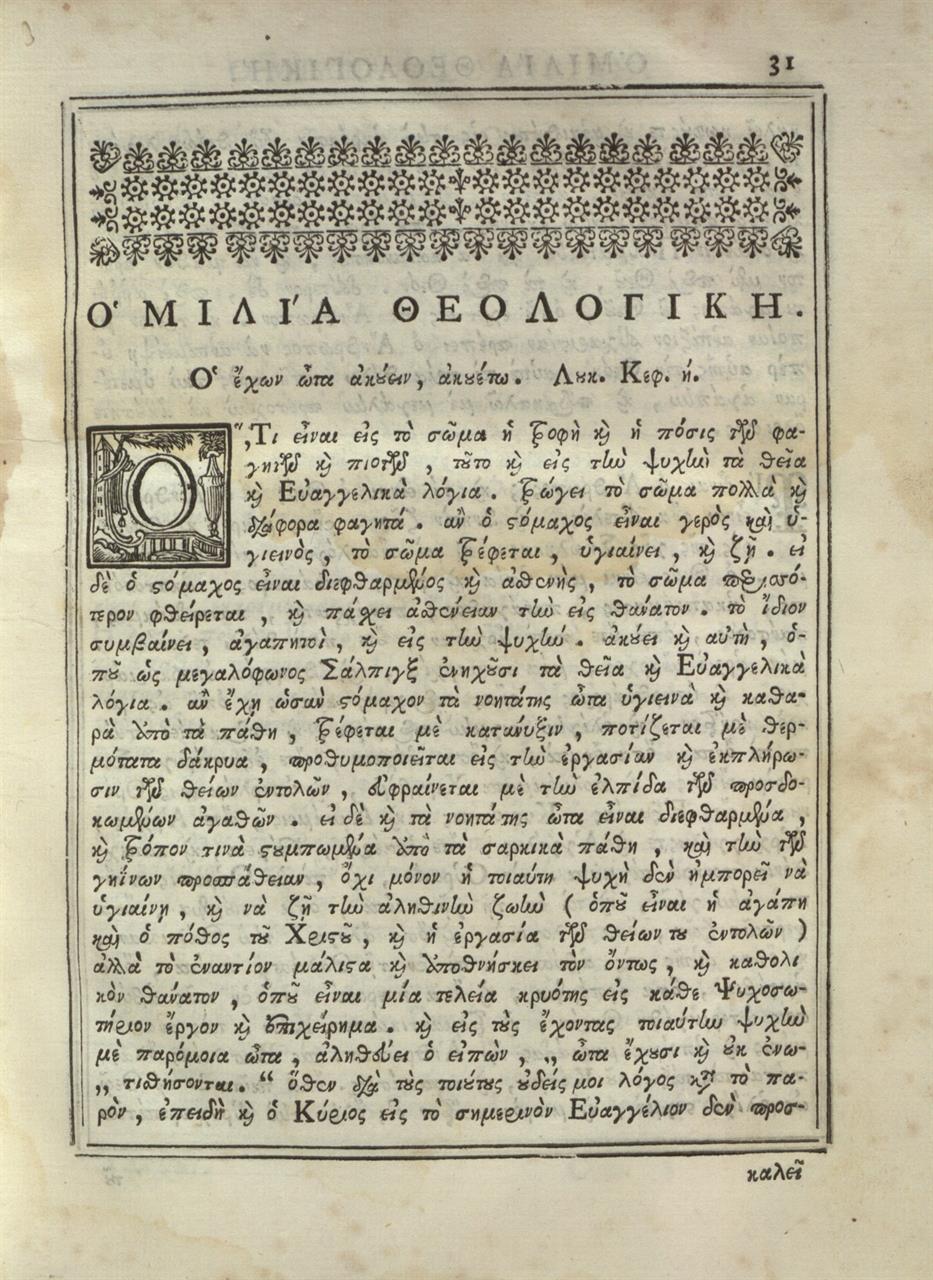 31
Ὁ ΜΙΛΙΆ ΘΕΟΛΟΓΙΚΗ.
Ὁ ἔχων ὦτα ἀκούειν, ἀκουέτω. Λουκ. Κεφ. ή.
Ὅ,Τι εἶναι εἰς τὸ σῶμα ἡ τροφὴ καὶ ἡ πόσις τῶν φα-
γητῶν καὶ πιοτῶν, τοῦτο καὶ εἰς τὴν ψυχὴν τὰ θεῖα
καὶ Εὐαγγελικὰ λόγια. τρώγει τὸ σῶμα πολλὰ καὶ
διάφορα φαγητά. ἂν ὁ στόμαχος εἶναι γερὸς καὶ ὑ-
γιεινὸς, τὸ σῶμα τρέφεται, ὑγιαίνει, καὶ ζῇ. εἰ
δὲ ὁ στόμαχος εἶναι διεφθαρμένος καὶ ἀσθενὴς, τὸ σῶμα περισσό-
τερον φθείρεται, καὶ πάχει ἀσθένειαν τὴν εἰς θάνατον. τὸ ἴδιον
συμβαίνει, ἀγαπητοὶ, καὶ εἰς τὴν ψυχήν. ἀκούει καὶ αὐτὴ, ὁ-
ποῦ ὡς μεγαλόφωνος Σάλπιγξ ἐνηχοῦσι τὰ θεῖα καὶ Εὐαγγελικὰ
λόγια. ἂν ἔχῃ ὡσὰν στόμαχον τὰ νοητάτης ὦτα ὑγιεινὰ καὶ καθα-
ρὰ ἀπὸ τὰ πάθη, τρέφεται μὲ κατάνυξιν, ποτίζεται μὲ θερ-
μότατα δάκρυα, προθυμοποιεῖται εἰς τὴν ἐργασίαν καὶ ἐκπλήρω-
σιν τῶν θείων ἐντολῶν, εὐφραίνεται μὲ τὴν ἐλπίδα τῶν προσδο-
κωμένων ἀγαθῶν. εἰ δὲ καὶ τὰ νοητάτης ὦτα εἶναι διεφθαρμένα,
καὶ τρόπον τινὰ στουμπωμένα ἀπὸ τὰ σαρκικὰ πάθη, καὶ τὴν τῶν
γηΐνων προσπάθειαν, ὄχι μόνον ἡ τοιαύτη ψυχὴ δὲν ἠμπορεῖ νὰ
ὑγιαίνῃ, καὶ νὰ ζῇ τὴν ἀληθινὴν ζωὴν (ὁποῦ εἶναι ἡ ἀγάπη
καὶ ὁ πόθος τοῦ Χριστοῦ, καὶ ἡ ἐργασία τῶν θείων του ἐντολῶν)
ἀλλὰ τὸ ἐναντίον μάλιστα καὶ ἀποθνήσκει τὸν ὄντως, καὶ καθολι
κὸν θάνατον, ὁποῦ εἶναι μία τελεία κρυότης εἰς κάθε Ψυχοσω-
τήριον ἔργον καὶ ἐπιχείρημα. καὶ εἰς τοὺς ἔχοντας τοιαύτην ψυχὴν
μὲ παρόμοια ὦτα, ἀληθεύει ὁ εἰπών, „ ὦτα ἔχουσι καὶ οὐκ ἐνω-
„ τισθήσονται.“ ὅθεν διὰ τοὺς τοιούτους οὐδείς μοι λόγος κατὰ τὸ πα-
ρὸν, ἐπειδὴ καὶ ὁ Κύριος εἰς τὸ σημερινὸν Εὐαγγέλιον δὲν προσ-
καλεῖ